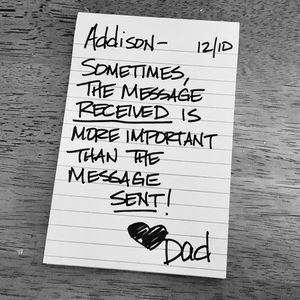 Addison- 12/10
SOMETIMES,
THE MESSAGE
RECEIVED IS
MORE IMPORTANT
THAN THE
MESSAGE
SENT!
Dad